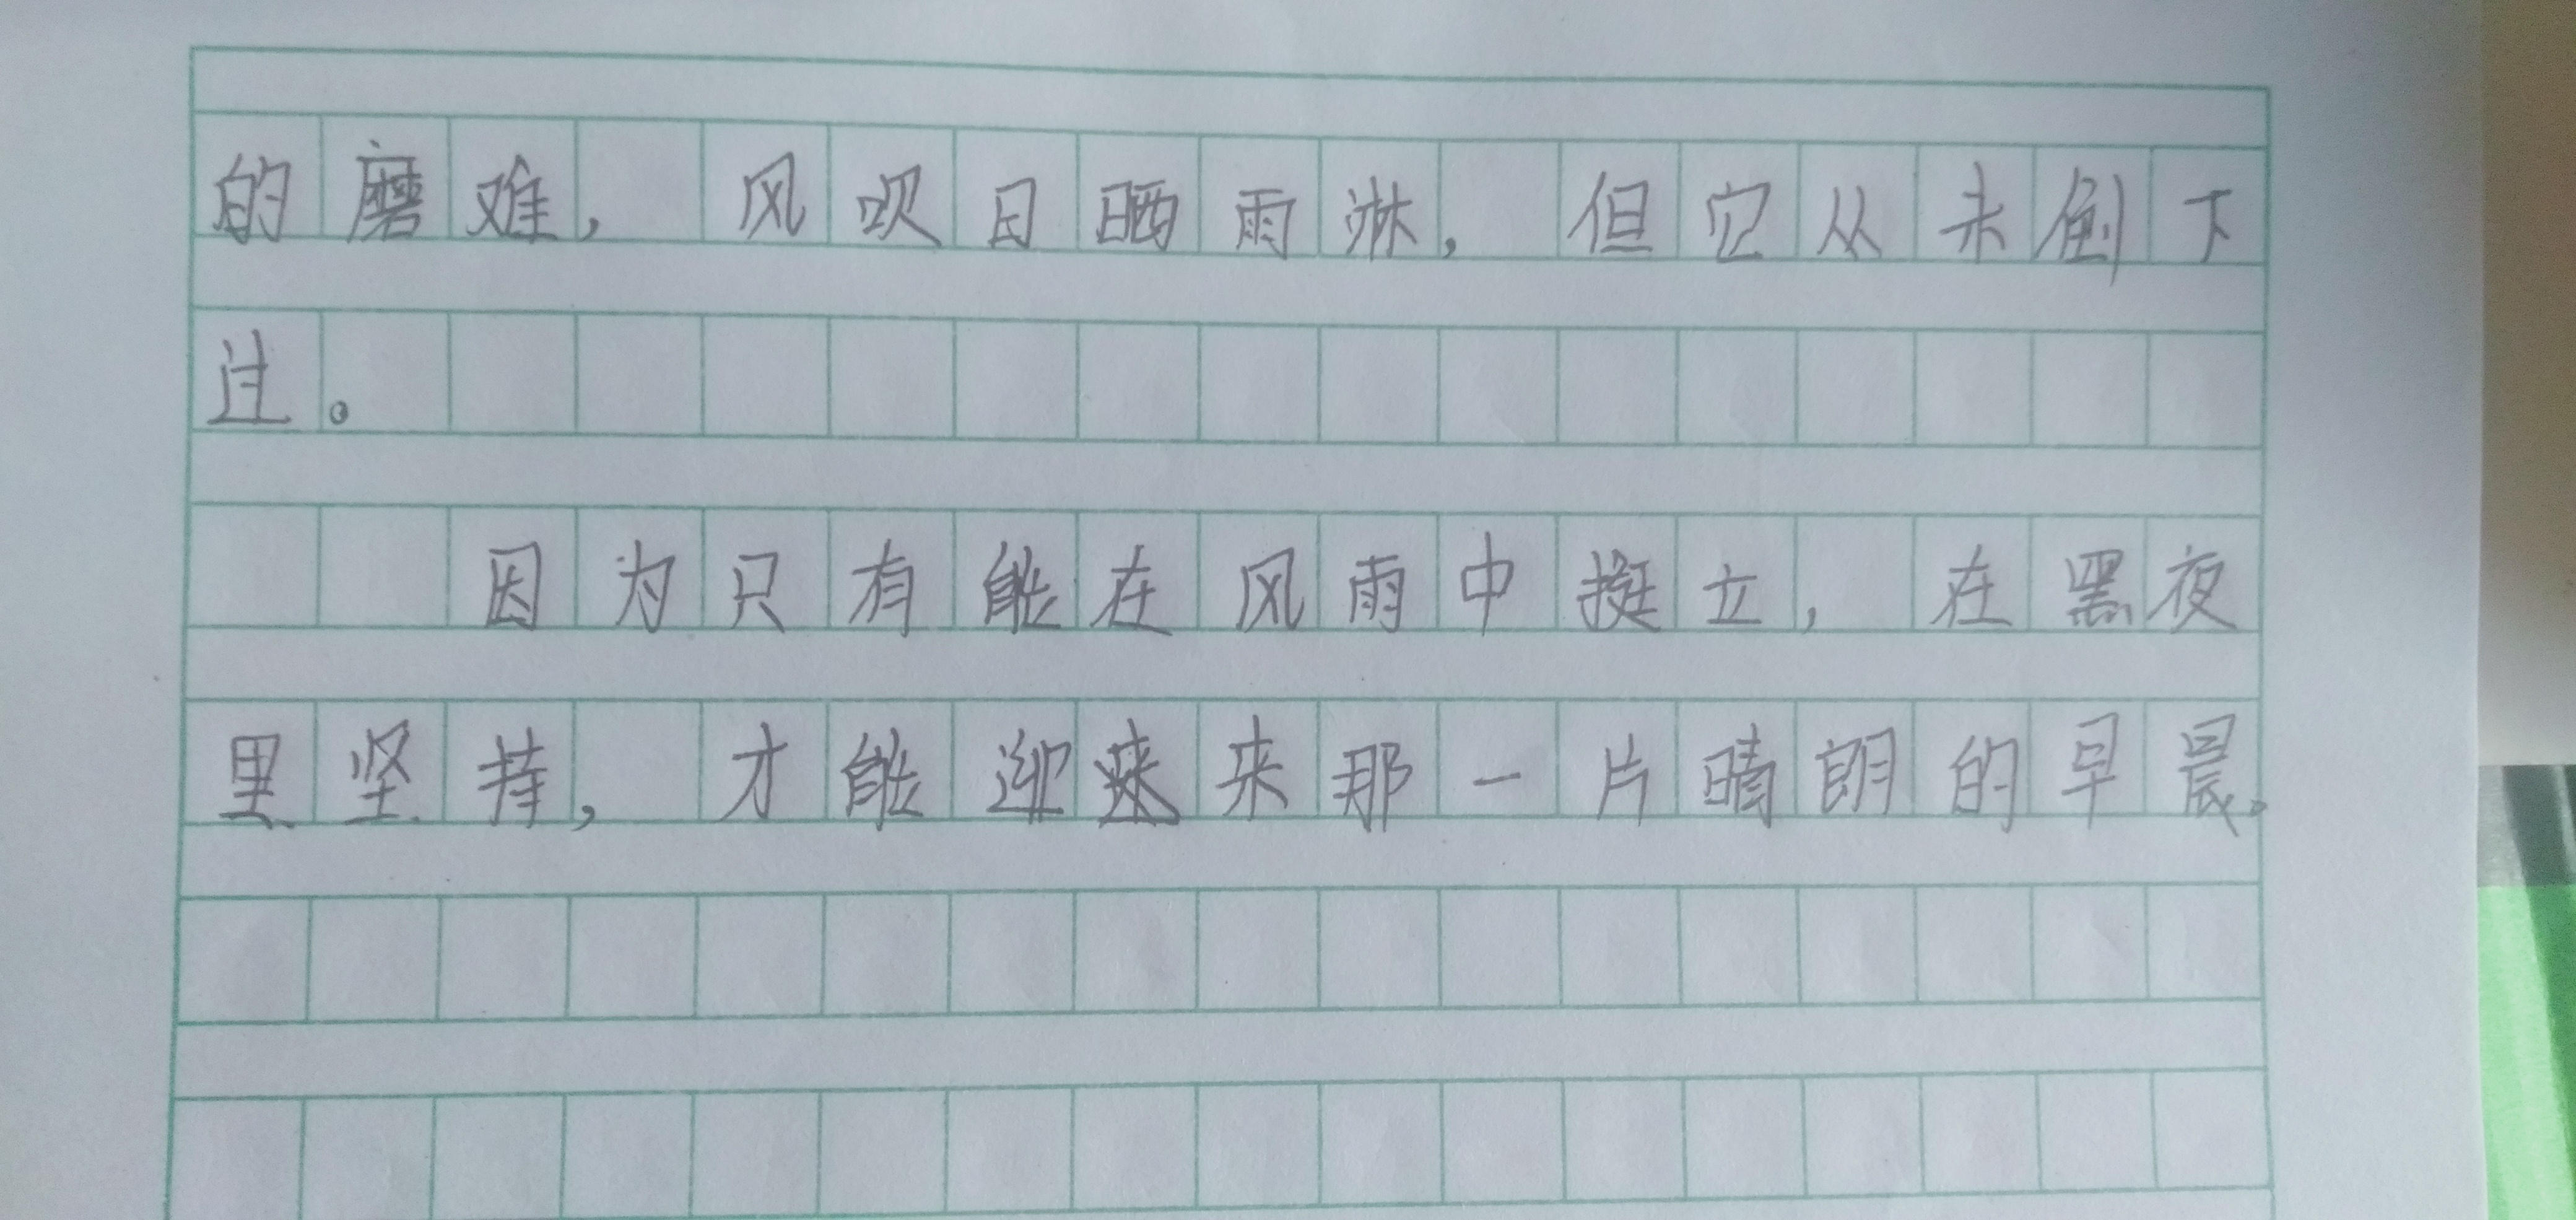 的磨难，风吹日晒雨淋，但它从未倒下
过。
因为只有能在风雨中挺立，在黑夜
里坚持，才能迎来那一片晴朗的早晨。